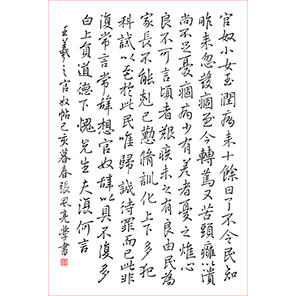 官奴小女玉潤病来十餘日了不令民知
昨来忽發痼至今轉篤又苦頭癰以潰
尚不足憂痼病少有差者憂之燋心
良不可言頃者艱疾未之有良由民為
家長不能剋己懃脩訓化上下多犯
科誡以至於此民唯歸誠待罪而已此非
復常言常辭想官奴辭以具不復多
白上負道德下愧先生夫復何言
王羲之官奴帖己亥暮春張恩亮學書